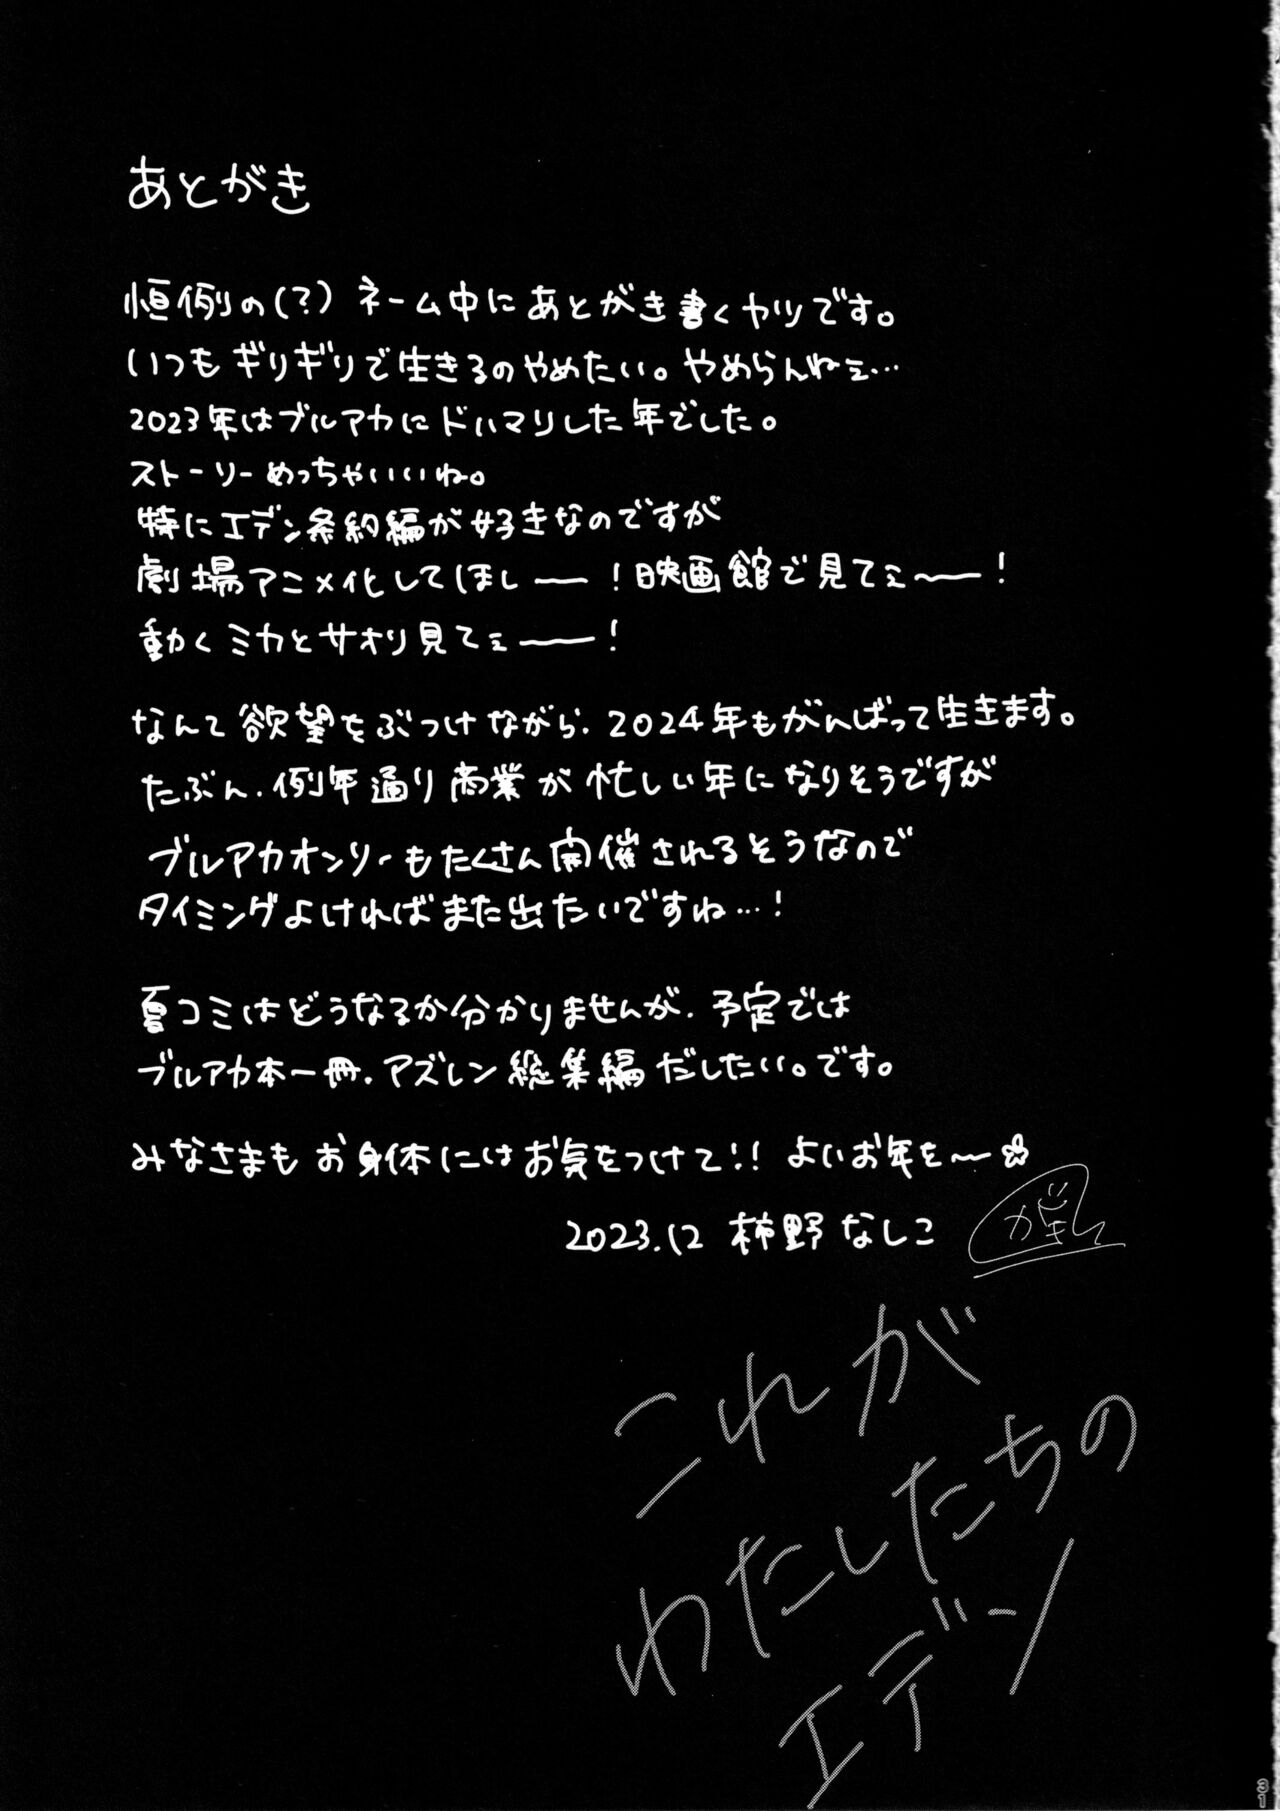 あとがき
恒例の(?) ネーム中にあとがき書くヤツです。
いつもギリギリで生きるのやめたい。やめらんねェ…
2023年はブルアカにドハマりした年でした。
ストーリーめっちゃいいね。
特にエデン条約編が好きなのですが
劇場アニメ化してほし――!映画館で見てェ〜――!
動くミカとサオリ見てェ――!
なんて欲望をぶつけながら、2024年もがんばって生きます。
たぶん、例年通り商業が忙しい年になりそうですが
ブルアカオンリーもたくさん開催されるそうなので
タイミングよければまた出たいですね…!
夏コミはどうなるか分かりませんが、予定では
ブルアカ本一冊、アズレン総集編だしたい。です。
みなさまもお身体にはお気をつけて!! よいお年を〜☆
2023.12 柿野なしこ
これが
わたしたちの
エデン
31